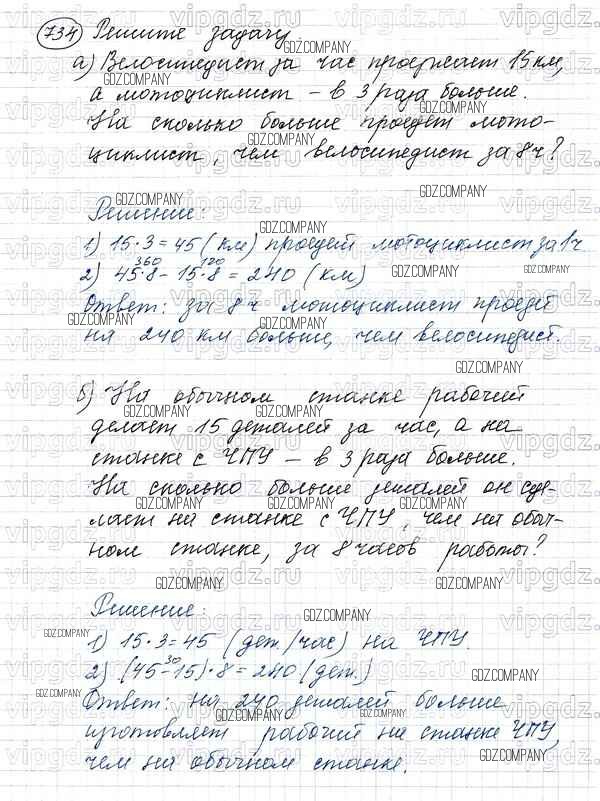 734 Решите задачу
а) Велосипедист за час проезжает 15 км,
а мотоциклист – в 3 раза больше.
На сколько больше проедет мото-
циклист, чем велосипедист за 8 ч?
Решение:
1) 15·3=45 (км) проедет мотоциклист за 1ч
360 120
2) 45·8-15·8=240 (км)
Ответ: за 8 ч мотоциклист проедет
на 240 км больше, чем велосипедист.
б) На обычном станке рабочий
делает 15 деталей за час, а на
станке с ЧПУ – в 3 раза больше.
На сколько больше деталей он сде-
лает на станке с ЧПУ, чем на обыч-
ном станке, за 8 часов работы?
Решение:
1) 15·3=45 (дет./час) на ЧПУ.
30
2) (45-15)·8=240 (дет.)
Ответ: на 240 деталей больше
изготовляет рабочий на станке ЧПУ,
чем на обычном станке.
GDZ.COMPANY
vipgdz.ru